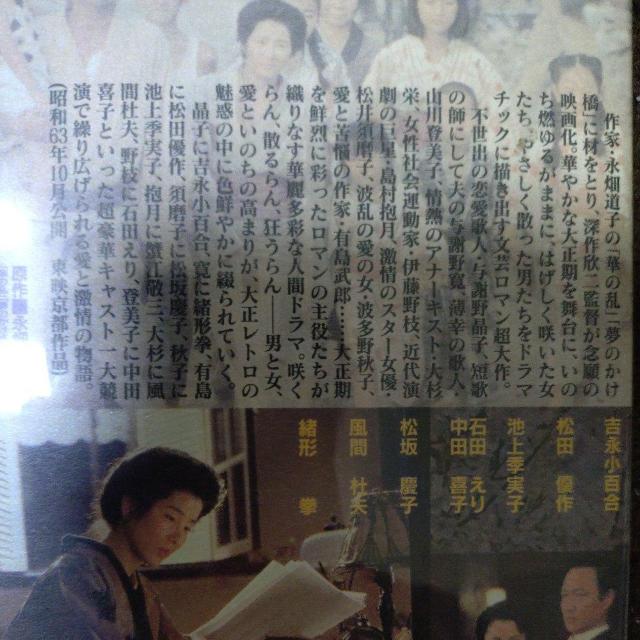 作家・永畑道子の「華の乱」「夢のかけ
橋」に材をとり、深作欣二監督が念願の
映画化。華やかな大正期を舞台に、いの
ち燃ゆるがままに、はげしく咲いた女
たち、やさしく散った男たちをドラマ
チックに描き出す文芸ロマン超大作。
不世出の恋愛歌人・与謝野晶子、短歌
の師にして夫の与謝野寛、薄幸の歌人、
山川登美子、情熱のアナーキスト、大杉
栄、女性社会運動家・伊藤野枝、近代演
劇の巨星、島村抱月、激情のスター女優・
松井須磨子、波乱の愛の女・波多野秋子、
愛と苦悩の作家・有島武郎……大正期
を鮮烈に彩ったロマンの主役たちが
織りなす華麗多彩な人間ドラマ。咲く
らん、散るらん、狂うらん——男と女、
愛といのちの高まりが、大正レトロの
魅惑の中、色鮮やかに綴られていく。
晶子に吉永小百合、寛に緒形拳、有島
に松田優作、須磨子に松坂慶子、秋子に
池上季実子、抱月に蟹江敬三、大杉に風
間杜夫、野枝に石田えり、登美子に中田
喜子といった超豪華キャスト一大競
演で繰り広げられる愛と激情の物語。
(昭和63年10月公開 東映京都作品)
吉永小百合
松田 優作
池上季実子
石田 えり
中田 喜子
松坂 慶子
風間 杜夫
緒形 拳